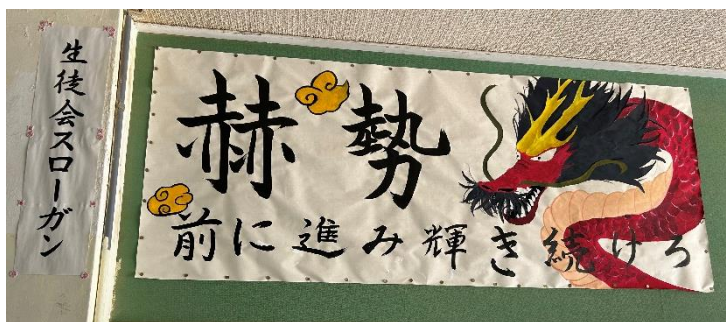 生徒会スローガン
赫勢
前に進み輝き続けろ